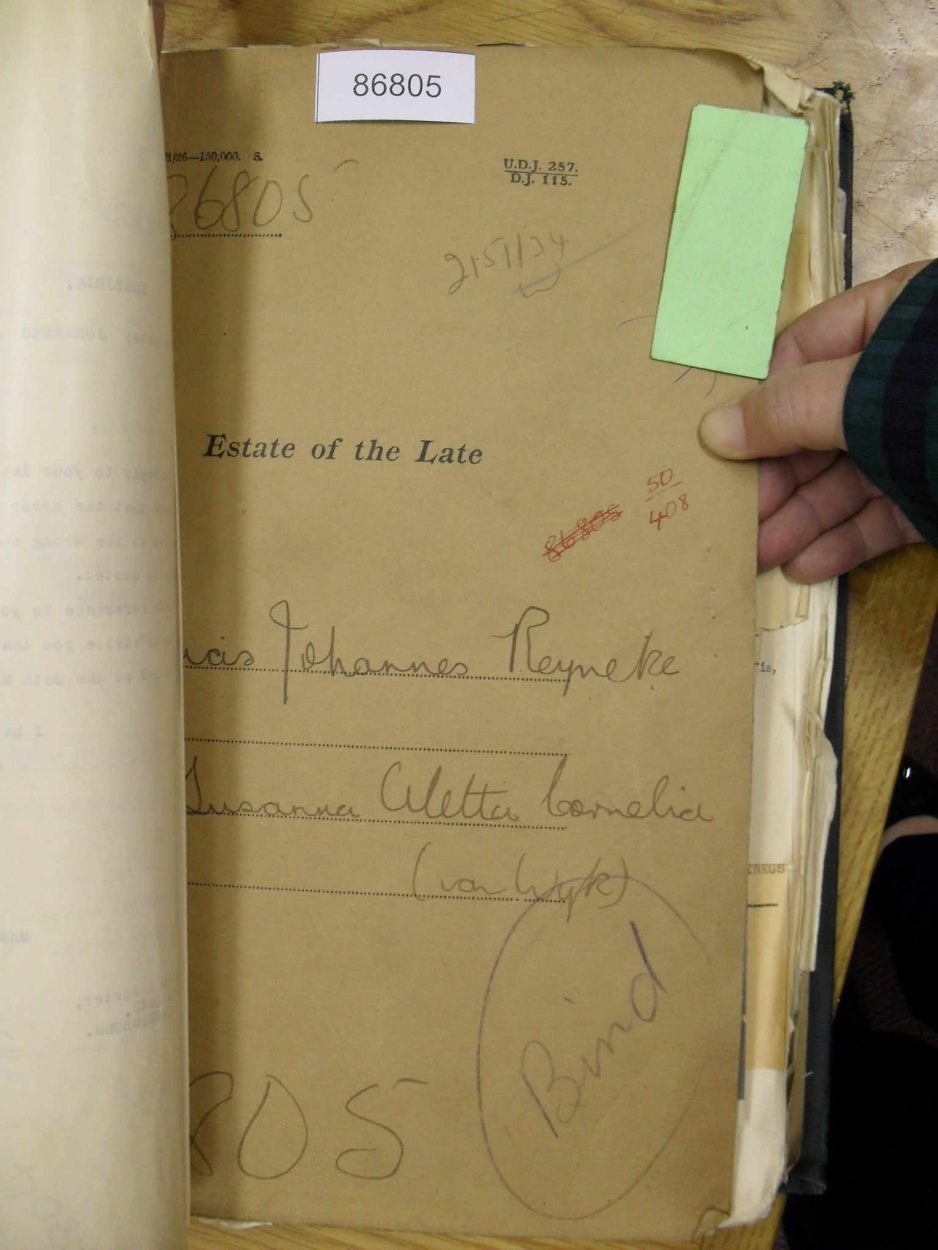 86805
1/26—150,000. S.
U.D.J. 257.
D.J. 115.
86805
Estate of the Late
86805
50
408
Johannes Reyneke
Susanna Aletta Cornelia
(van Wyk)
Bind
805